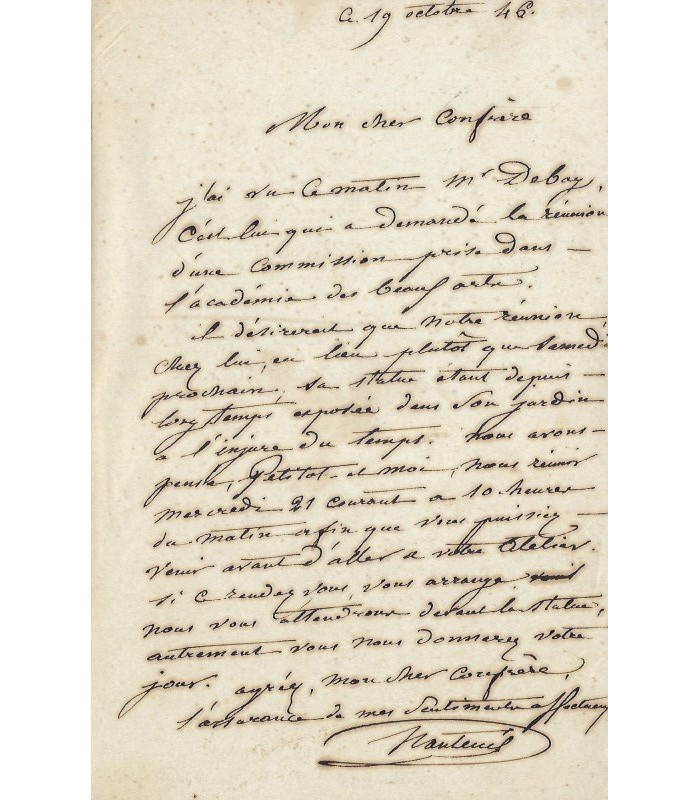 Ce 19 octobre 46.
Mon cher Confrère
j'ai vu ce matin Mr Debay,
c'est lui qui a demandé la réunion
d'une Commission prise dans —
l'académie des beaux arts.
il désirerait que notre réunion,
chez lui, eu lieu plutôt que Samedi
prochain, sa statue étant depuis —
longtemps exposée dans son jardin
a l'injure du temps. nous avons —
pensé, Petitot et moi, nous réunir
mercredi 21 courant a 10 heures
du matin afin que vous puissiez —
venir avant d'aller a votre atelier.
si ce rendez vous, vous arrange,
nous vous attendrons devant la statue,
autrement vous nous donnerez votre
jour. agréez, mon cher confrère,
l'assurance de mes Sentiments affectueux
Nanteuil